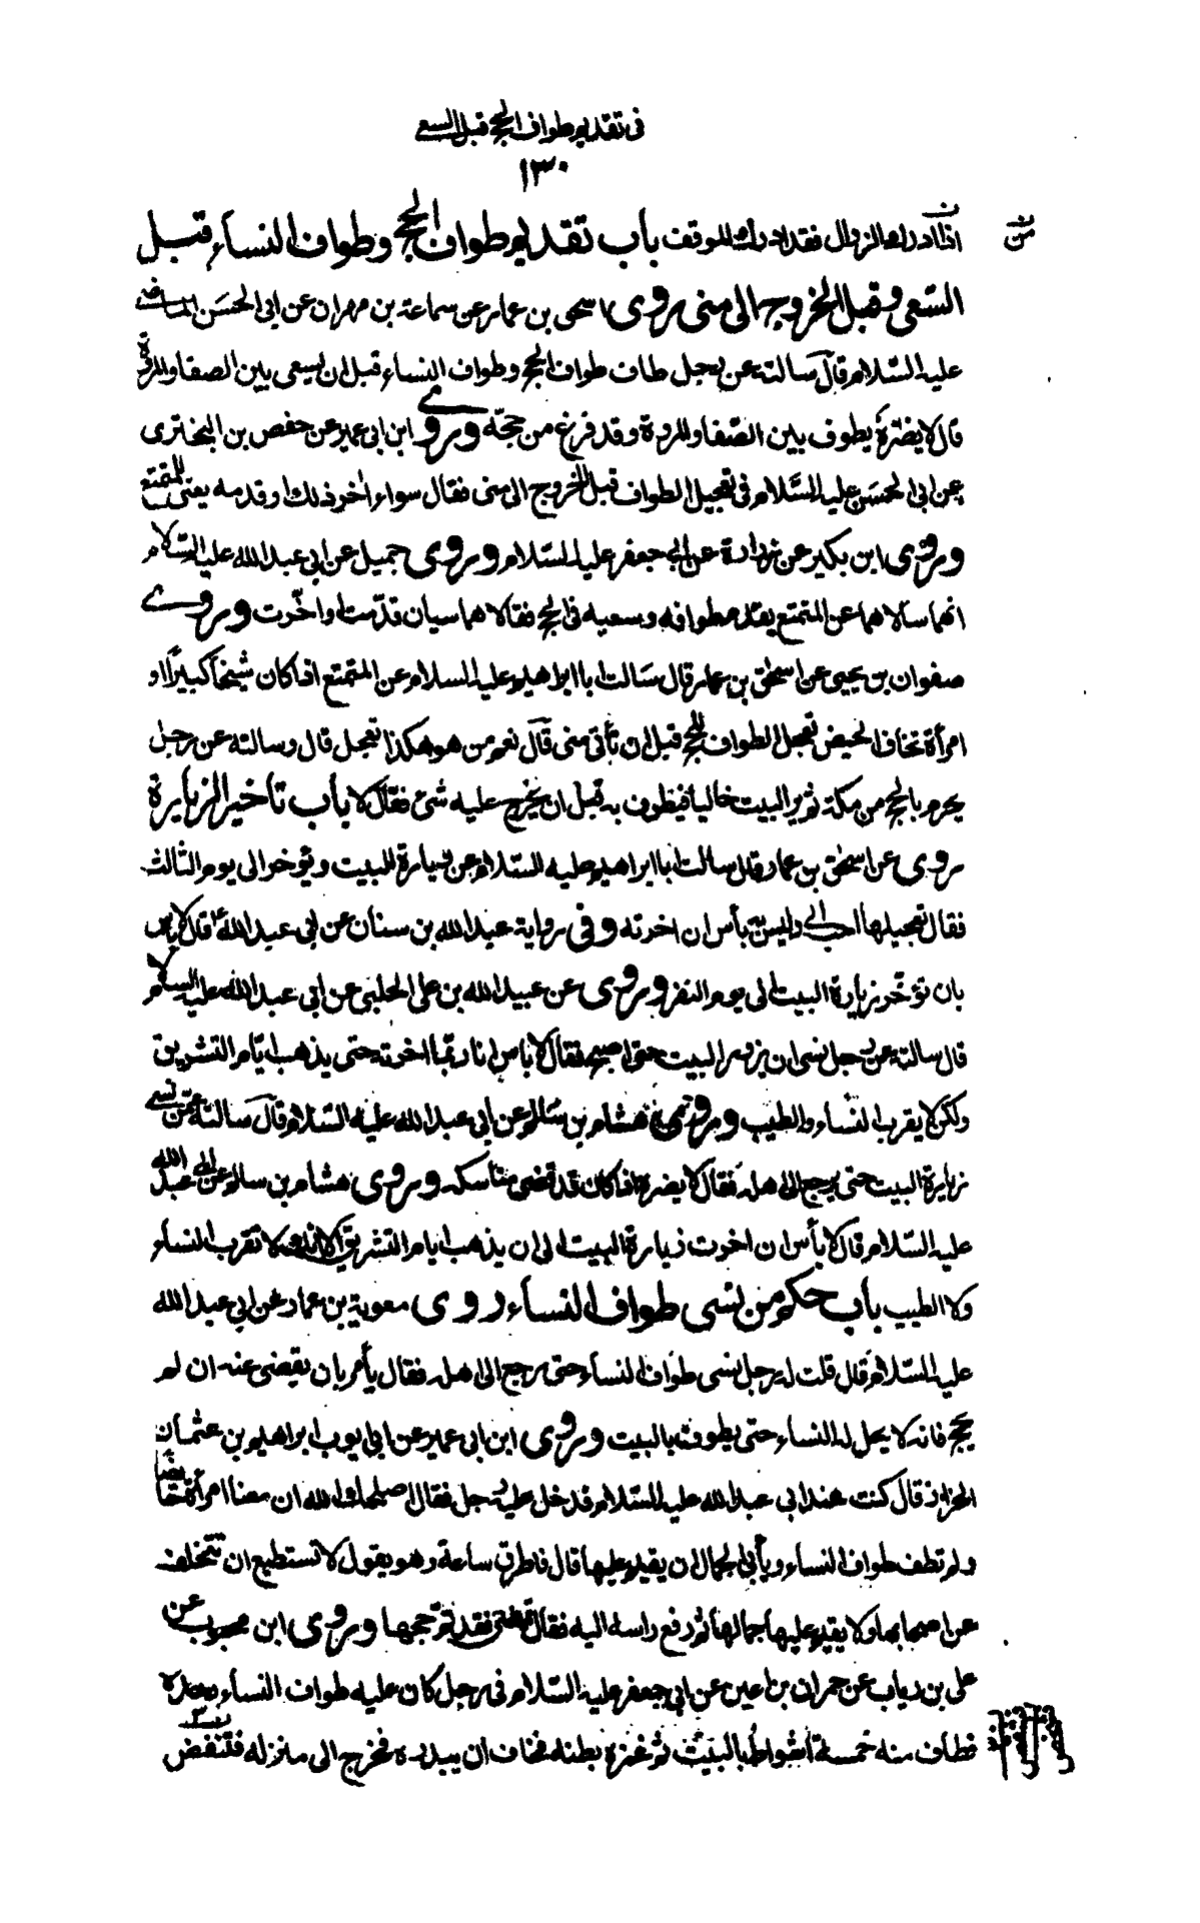 في تقديم طواف الحج قبل السعي
١٣٠
اذا ادرك الزوال فقد ادرك الموقف باب تقديم طواف الحج وطواف النساء قبل
السعي وقبل الخروج الى منى روى اسحق بن عمار عن سماعة بن مهران عن ابي الحسن الماضي
عليه السلام قال سالته عن رجل طاف طواف الحج وطواف النساء قبل ان يسعى بين الصفا والمروة
قال لا يضره يطوف بين الصفا والمروة وقد فرغ من حجه وروى ابن ابي عمير عن حفص بن البختري
عن ابي الحسن عليه السلام في تعجيل الطواف قبل الخروج الى منى فقال سواء اخر ذلك او قدمه يعني المتمتع
وروى ابن بكير عن زرارة عن ابي جعفر عليه السلام وروى جميل عن ابي عبد الله عليه السلام
انهما سالاهما عن المتمتع يقدم طوافه وسعيه في الحج فقالا هما سيان قدمت او اخرت وروى
صفوان بن يحيى عن اسحق بن عمار قال سالت ابا ابراهيم عليه السلام عن المتمتع اذا كان شيخا كبيرا او
امرأة تخاف الحيض تعجل الطواف للحج قبل ان تأتي منى قال نعم من هو هكذا تعجل قال وسالته عن رجل
يحرم بالحج من مكة ثم يرا البيت خاليا فيطوف به قبل ان يخرج عليه شئ فقال لا باب تاخير الزيارة
روى عن اسحق بن عمار قال سالت ابا ابراهيم عليه السلام عن زيارة البيت ويؤخر الى يوم الثالث
فقال تعجيلها احب الي وليس به بأس ان اخرته وفي رواية عبد الله بن سنان عن ابي عبد الله ع قال لا باس
بان تؤخر زيارة البيت الى يوم النفر وروى عن عبيد الله بن علي الحلبي عن ابي عبد الله عليه السلام
قال سالته عن رجل نسي ان يزور البيت حتى اصبح فقال لا باس انا ربما اخرته حتى يذهب ايام التشريق
ولكن لا يقرب النساء والطيب وروى هشام بن سالم عن ابي عبد الله عليه السلام قال سالته عمن نسي
زيارة البيت حتى يرجع الى اهله فقال لا يضره اذا كان قد قضى مناسكه وروى هشام بن سالم عن ابي عبد الله
عليه السلام قال لا بأس ان اخرت زيارة البيت الى ان يذهب ايام التشريق الا انك لا تقرب النساء
ولا الطيب باب حكم من نسي طواف النساء روى معوية بن عمار عن ابي عبد الله
عليه السلام قال قلت له رجل نسي طواف النساء حتى يرجع الى اهله فقال يأمر بان يقضى عنه ان لم
يحج فانه لا يحل له النساء حتى يطوف بالبيت وروى ابن ابي عمير عن ابي ايوب ابراهيم بن عثمان
الخزاز قال كنت عند ابي عبد الله عليه السلام فدخل عليه رجل فقال اصلحك الله ان معنا امرأة حائضا
ولم تطف طواف النساء ويأبى الجمال ان يقيم عليها قال فاطرق ساعة وهو يقول لا تستطيع ان تتخلف
عن اصحابها ولا يقيم عليها جمالها ثم رفع راسه اليه فقال تمضى فقد تم حجها وروى ابن محبوب عن
علي بن رياب عن حمران بن اعين عن ابي جعفر عليه السلام في رجل كان عليه طواف النساء وحده
فطاف منه خمسة اشواط بالبيت ثم غمزه بطنه فخاف ان يبدره فخرج الى منزله فتنفض